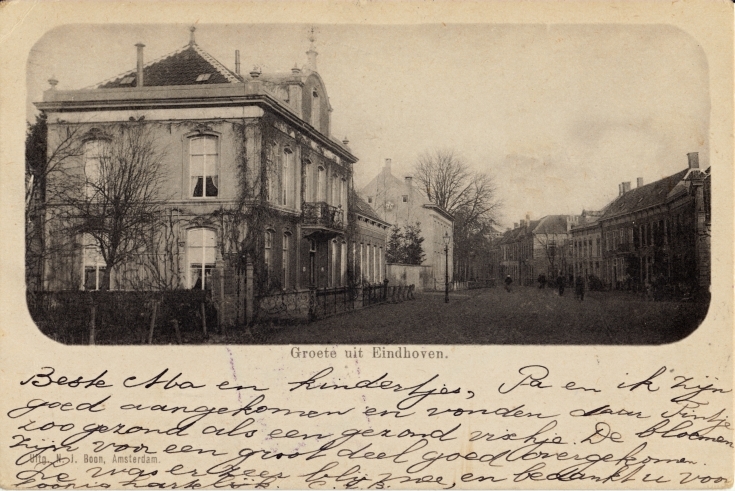 Groete uit Eindhoven.
Beste Aba en kindertjes, Pa en ik zijn
goed aangekomen en vonden daar Tintje
zoo gezond als een gezond vischje. De bloemen
zijn voor een groot deel goed overgekomen.
Uitg. N. J. Boon, Amsterdam.
was er zeer blij mee, en bedankt u voor
hartelijk.